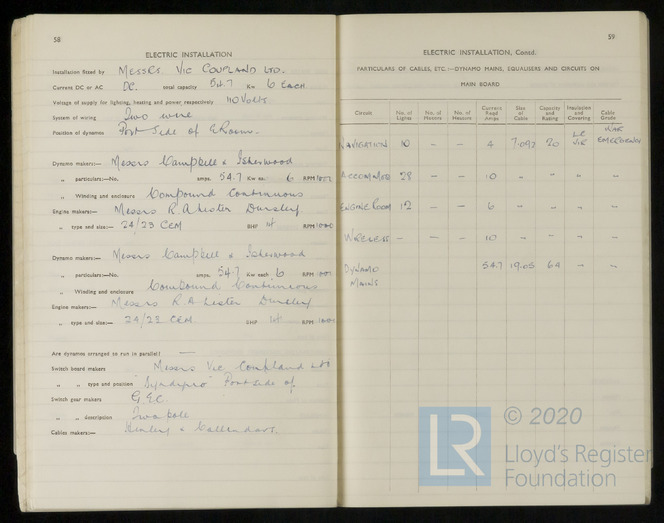 58
ELECTRIC INSTALLATION
Installation fitted by Messrs. Vic Coupland Ltd.
Current DC or AC DC. total capacity 54.7 Kw 6 each
Voltage of supply for lighting, heating and power respectively 110 Volts.
System of wiring Two wire
Position of dynamos Port Side of E Room.
Dynamo makers:— Messrs Campbell & Isherwood
„ particulars:—No. amps. 54.7 Kw ea. 6 RPM 1000
„ Winding and enclosure Compound Continuous
Engine makers:— Messrs R. A. Lester Dursley
„ type and size:— 24/23 CEM BHP RPM 1000
Dynamo makers:— Messrs Campbell & Isherwood
„ particulars:—No. amps. 54.7 Kw each 6 RPM 1000
„ Winding and enclosure Compound Continuous
Engine makers:— Messrs R A Lester Dursley
„ type and size:— 24/23 CEM BHP RPM
Are dynamos arranged to run in parallel? —
Switch board makers Messrs Vic Coupland Ltd
„ „ type and position Port side of
Switch gear makers G.E.C.
„ „ description Two pole
Cables makers:— Henley & Callendars.
59
ELECTRIC INSTALLATION, Contd.
PARTICULARS OF CABLES, ETC.:—DYNAMO MAINS, EQUALISERS AND CIRCUITS ON
MAIN BOARD
Circuit No. of Lights No. of Motors No. of Heaters Current Read Amps Size of Cable Capacity and Rating Insulation and Covering Cable Grade
NAVIGATION 10 — — 4 7.097 20 VIR WAR EMERGENCY
ACCOMMOD 28 — — 10 „ „ „ „
ENGINE ROOM 12 — — 6 „ „ „ „
WIRELESS — — — 10 „ „ „ „
DYNAMO MAINS 54.7 64 „ „
LR © 2020
Lloyd's Register
Foundation